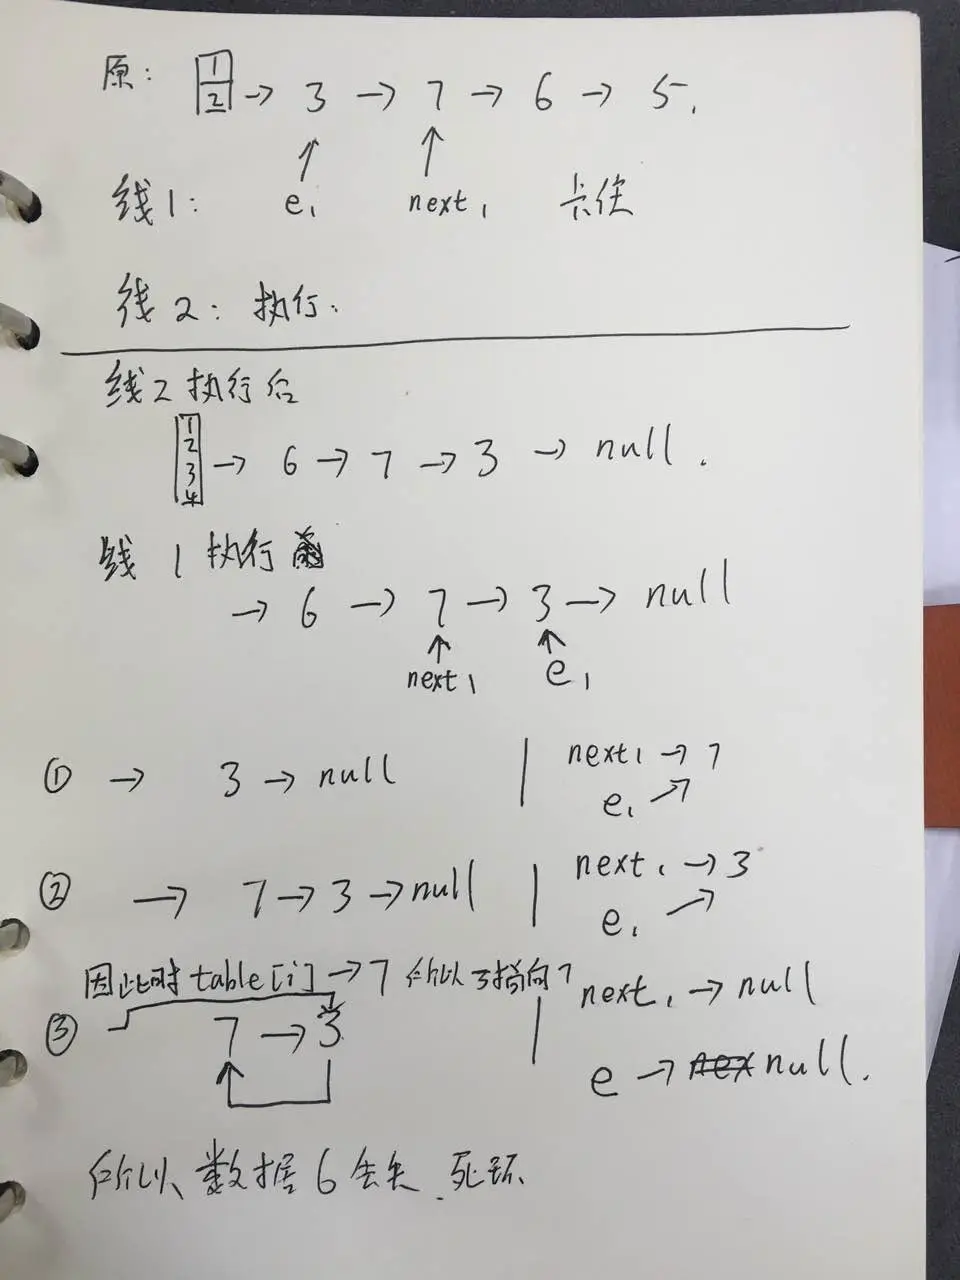 原: 1 2 → 3 → 7 → 6 → 5.
↑ ↑
线1: e₁ next₁ 卡住
线2: 执行.
线2执行后
1 2 3 4 → 6 → 7 → 3 → null.
线1执行
→ 6 → 7 → 3 → null
↑ ↑
next₁ e₁
① → 3 → null | next₁ → 7
e₁ ↗
② → 7 → 3 → null | next₁ → 3
e₁ ↗
因此时 table[i] → 7 所以3指向7
③ 7 → 3 | next₁ → null
e → null.
所以数据6丢失.死环